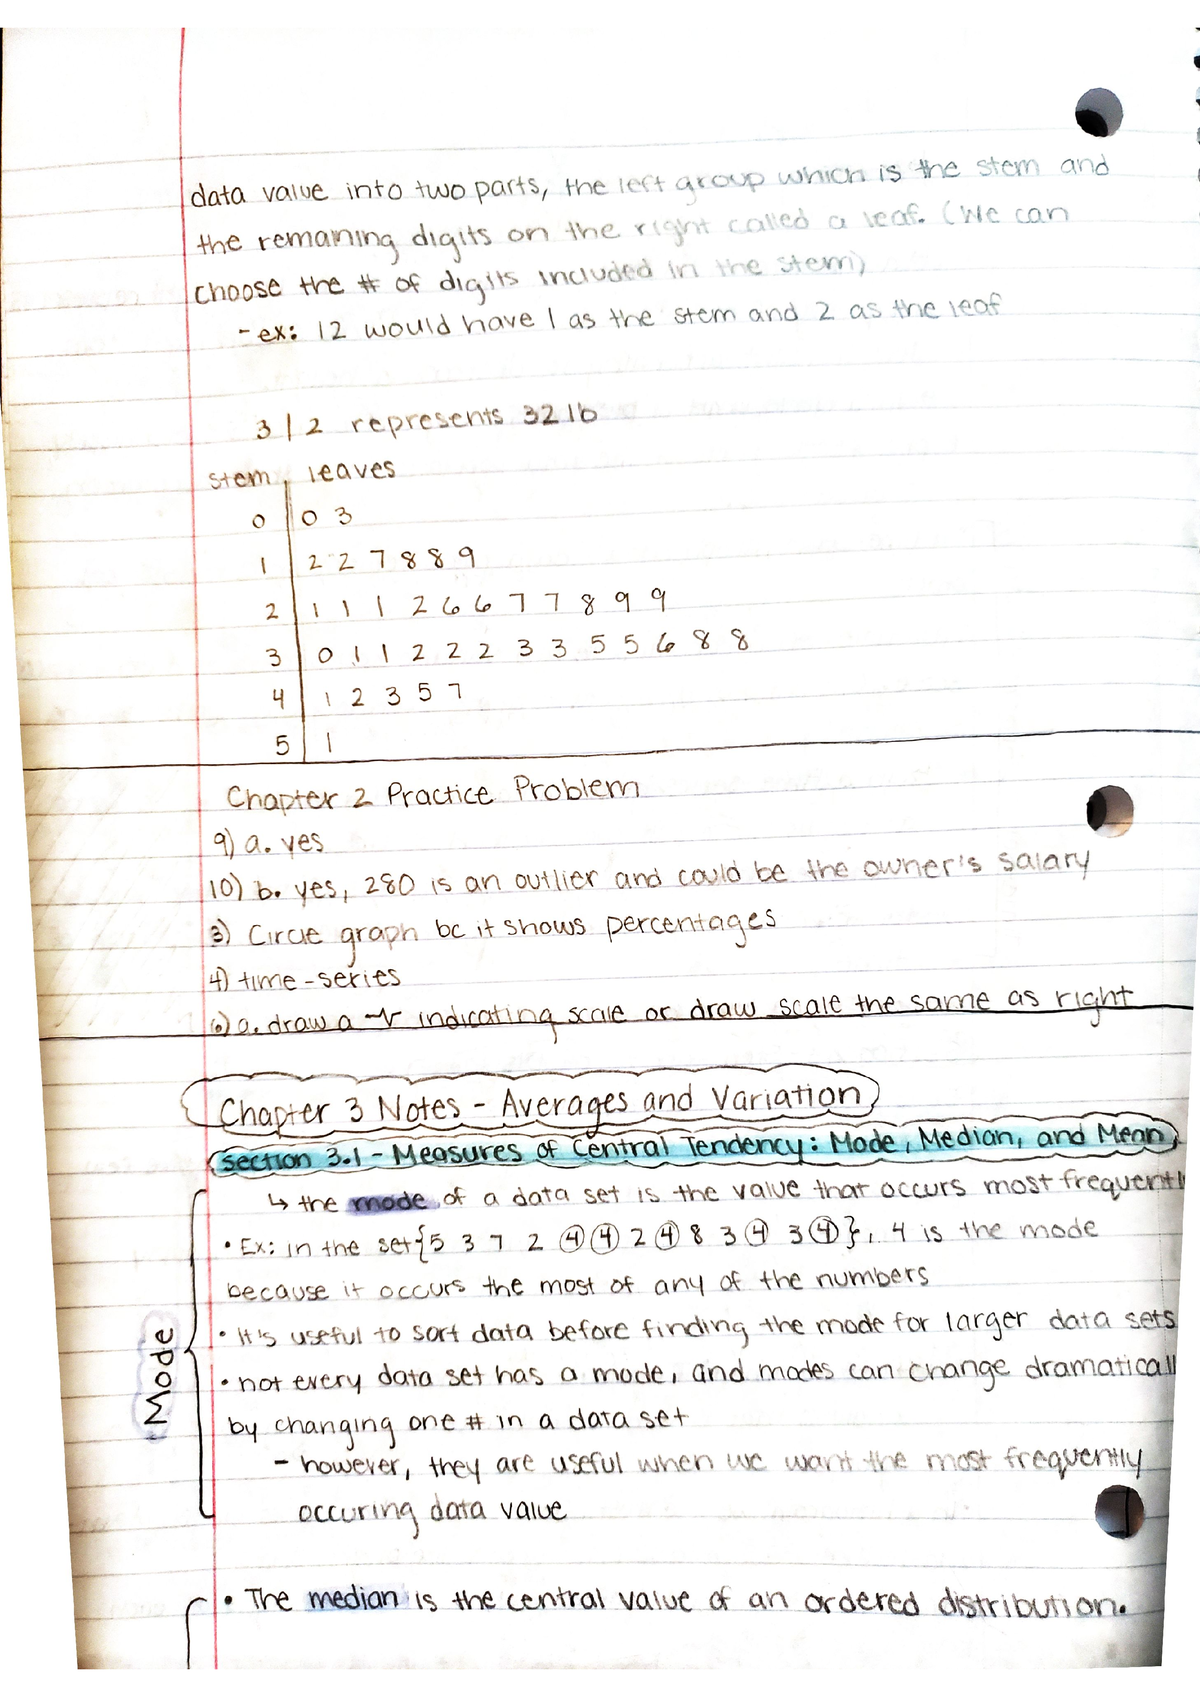 data value into two parts, the left group which is the stem and
the remaning digits on the right called a leaf. (We can
choose the # of digits included in the stem)
- ex: 12 would have 1 as the stem and 2 as the leaf
3 | 2 represents 32 lb
stem leaves
0 | 0 3
1 | 2 2 7 8 8 9
2 | 1 1 1 2 6 6 7 7 8 9 9
3 | 0 1 1 2 2 2 3 3 5 5 6 8 8
4 | 1 2 3 5 7
5 | 1
Chapter 2 Practice Problem
9) a. yes
10) b. yes, 280 is an outlier and could be the owner's salary
3) Circle graph bc it shows percentages
4) time-series
6) a. draw a indicating scale or draw scale the same as right
Chapter 3 Notes - Averages and Variation
Section 3.1 - Measures of Central Tendency: Mode, Median, and Mean
↳ the mode of a data set is the value that occurs most frequentl
• Ex: in the set {5 3 7 2 4 4 2 4 8 3 4 3 4}, 4 is the mode
because it occurs the most of any of the numbers
• It's useful to sort data before finding the mode for larger data sets
• not every data set has a mode, and modes can change dramaticall
by changing one # in a data set
- however, they are useful when we want the most frequently
occuring data value
Mode
• The median is the central value of an ordered distribution.